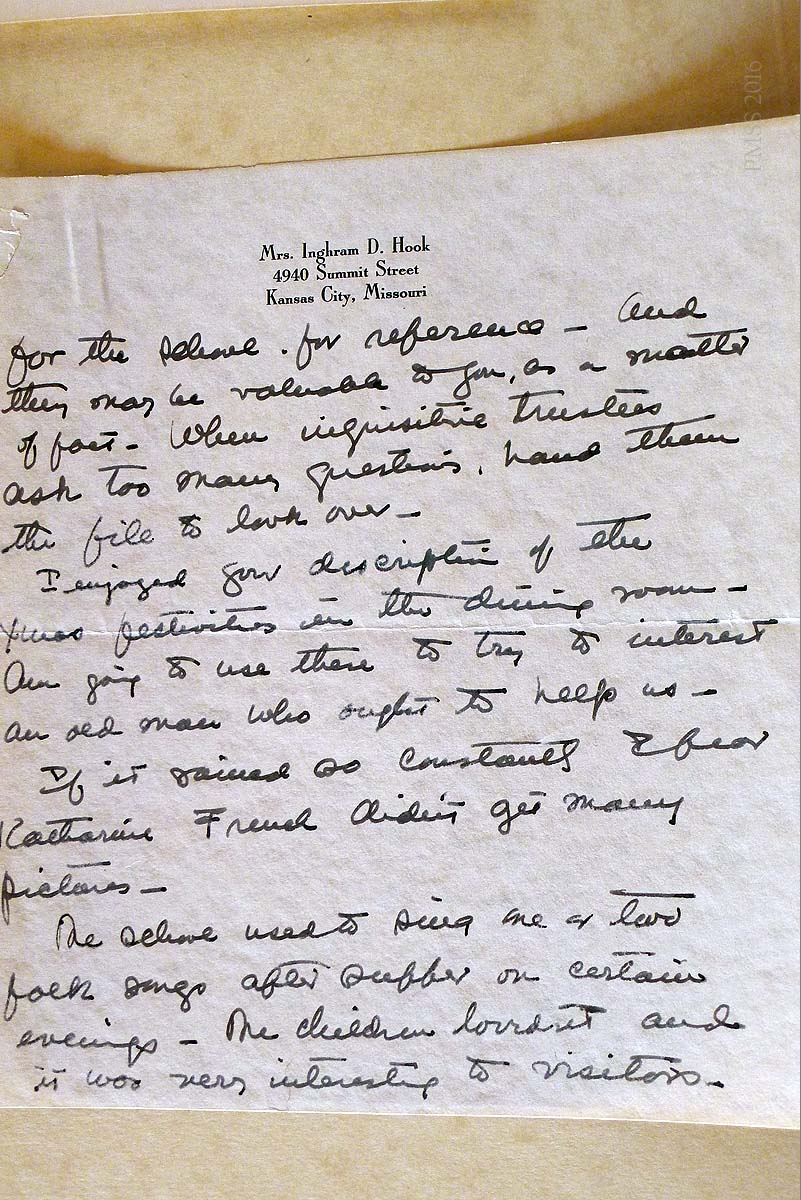 PMSS 2016
Mrs. Inghram D. Hook
4940 Summit Street
Kansas City, Missouri
for the school . for reference — And
they may be valuable to you, as a matter
of fact — When inquisitive trustees
ask too many questions, hand them
the file to look over —
I enjoyed your description of the
Xmas festivities in the dining room —
Am going to use these to try to interest
an old man who ought to help us —
If it rained so constantly I fear
Katharine French didn't get many
pictures —
The school used to sing one or two
folk songs after supper on certain
evenings — The children loved it and
it was very interesting to visitors —